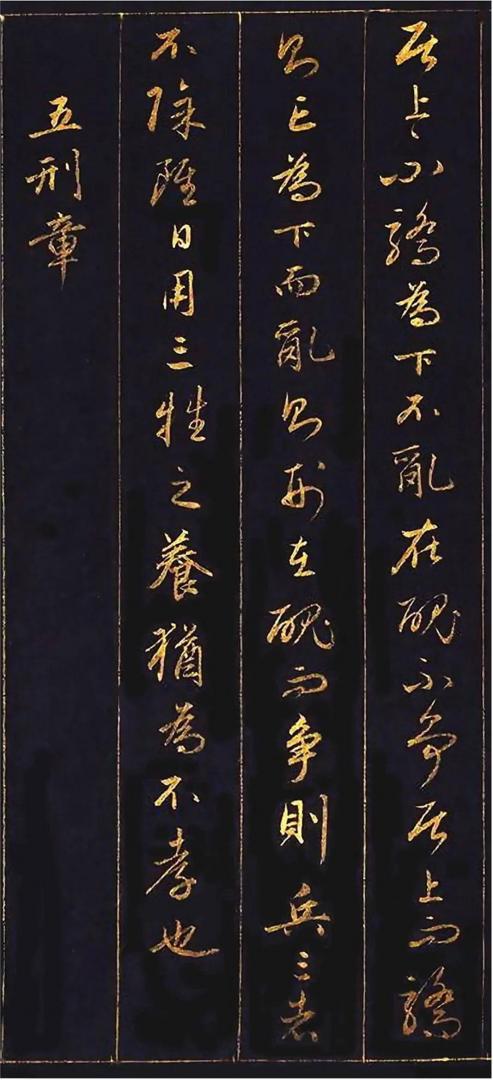 居上不驕為下不亂在醜不爭居上而驕
則亡為下而亂則刑在醜而爭則兵三者
不除雖日用三牲之養猶為不孝也
五刑章